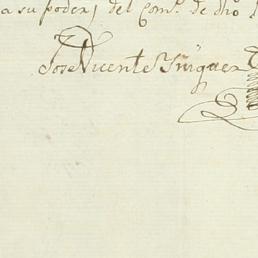 a su poder, del Com.º de dho
Jose Vicente Yñiguez